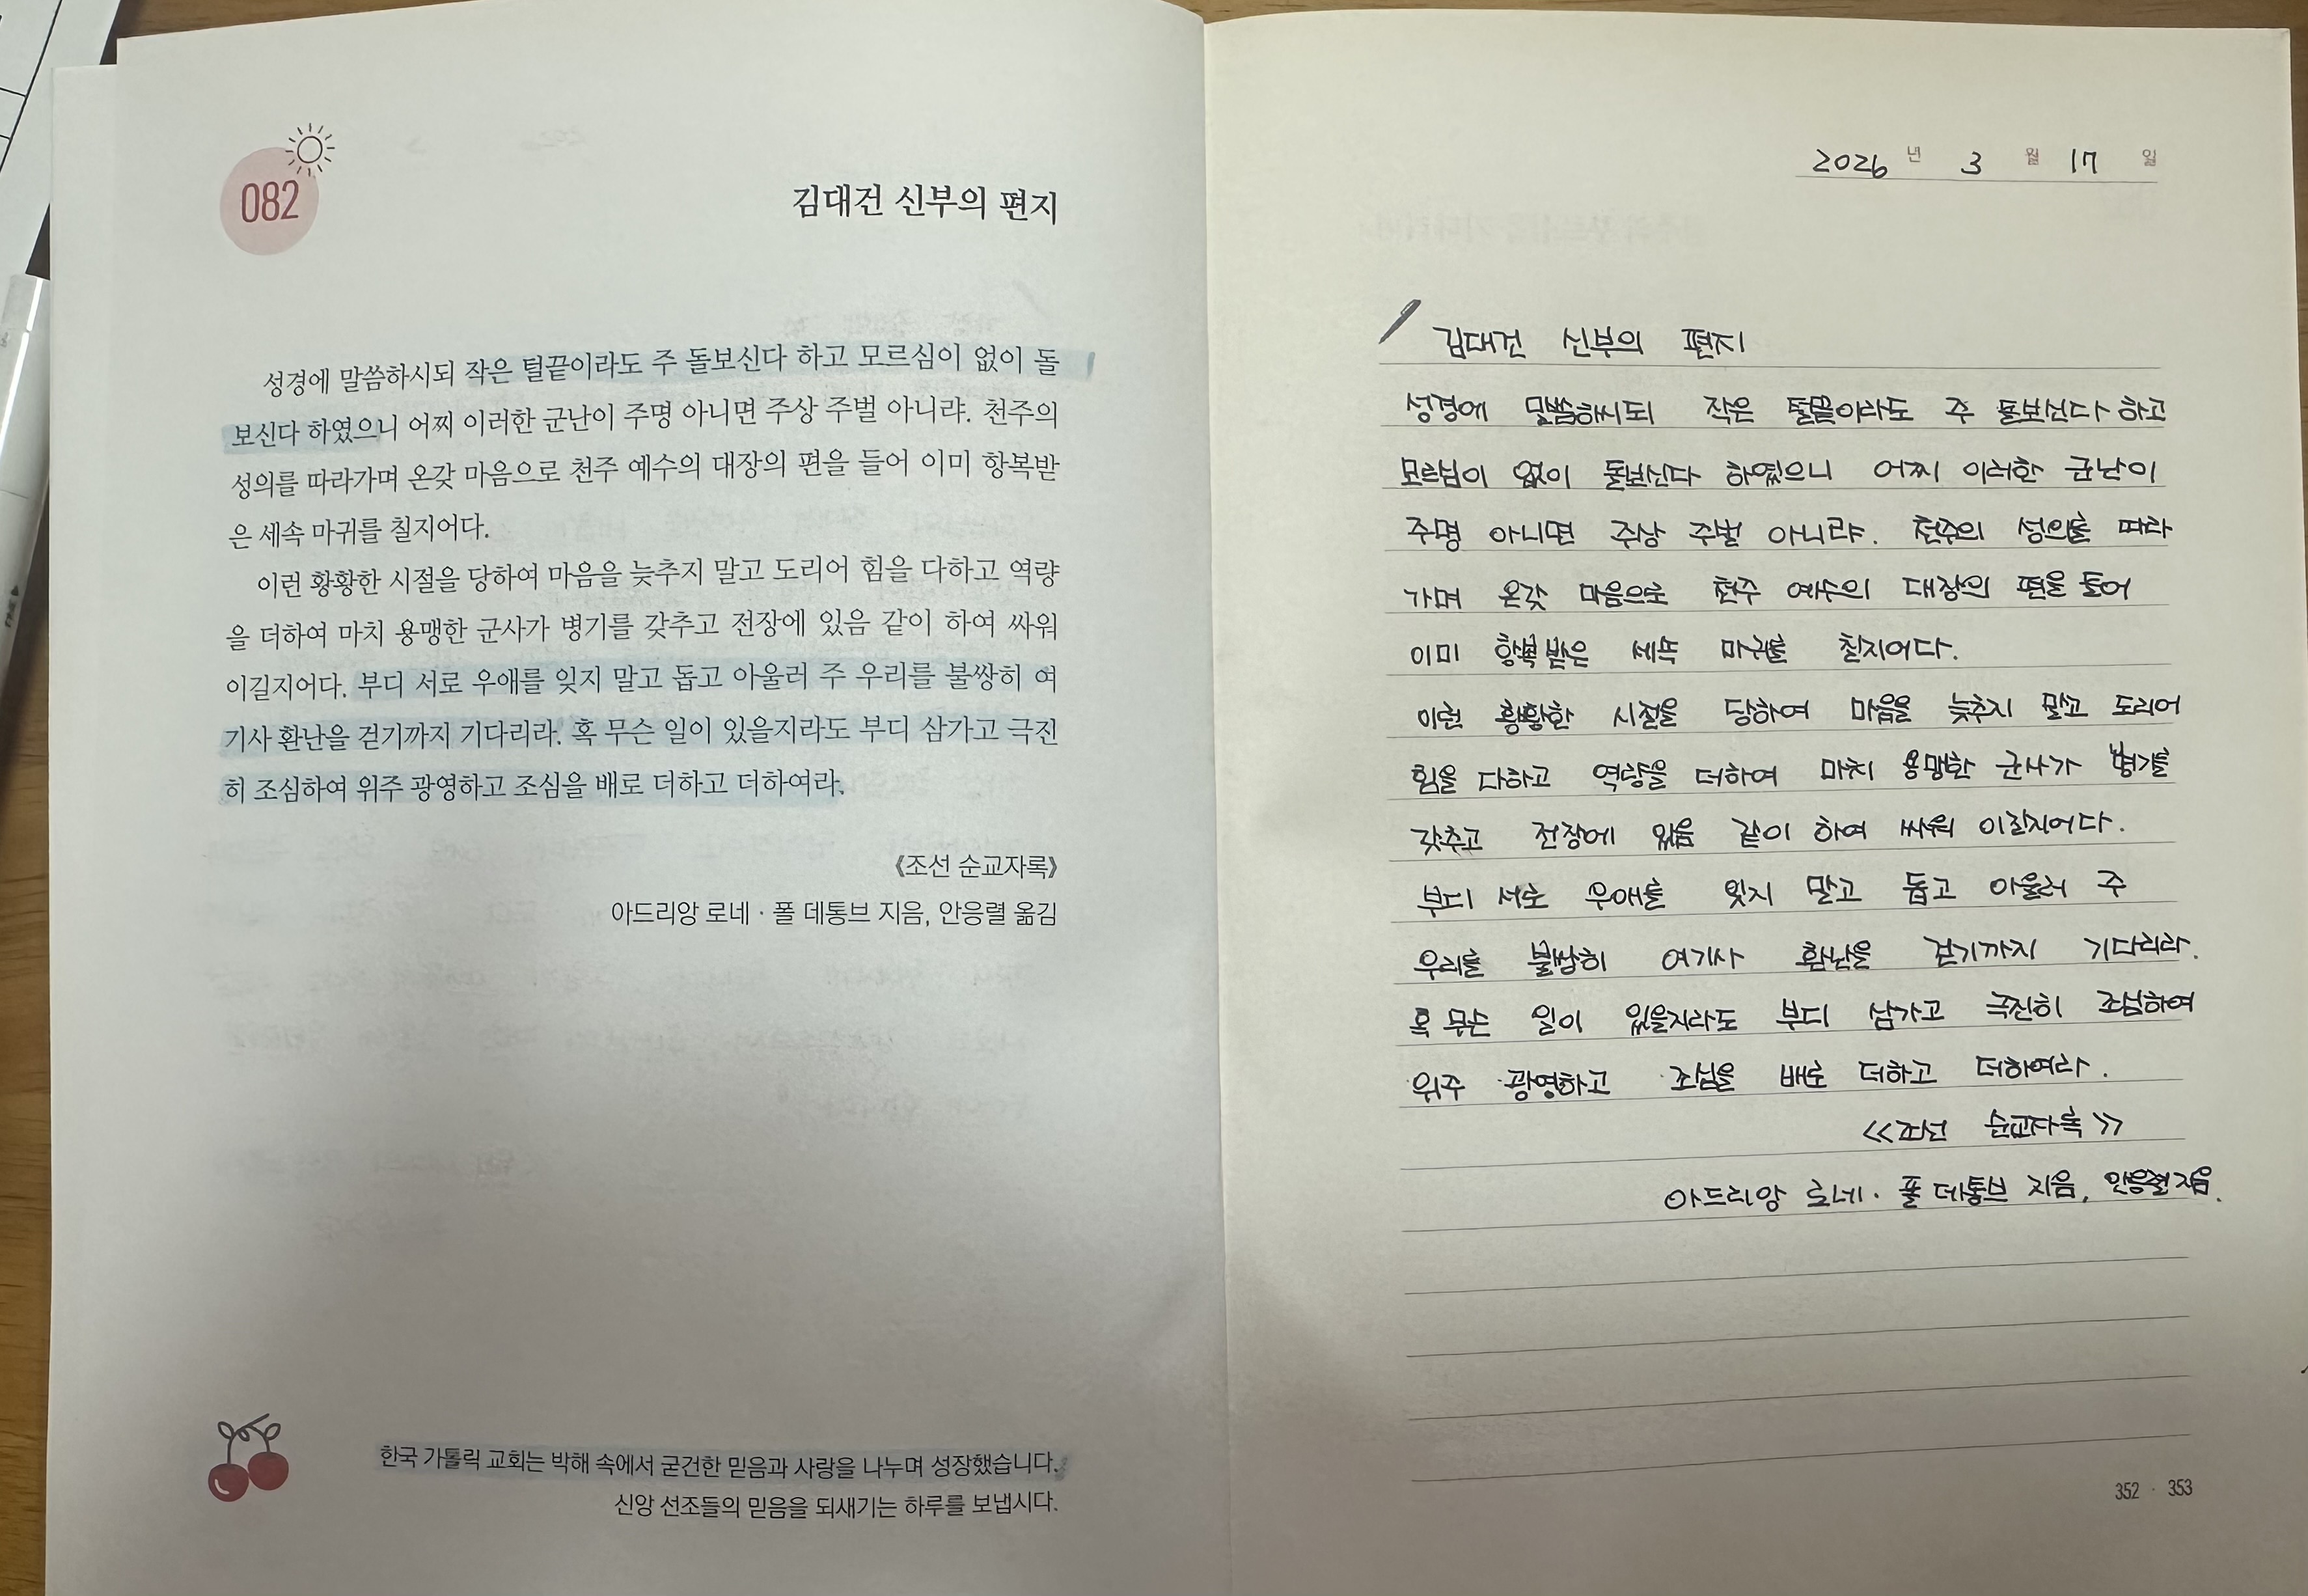 082
김대건 신부의 편지
성경에 말씀하시되 작은 털끝이라도 주 돌보신다 하고 모르심이 없이 돌
보신다 하였으니 어찌 이러한 군난이 주명 아니면 주상 주벌 아니랴. 천주의
성의를 따라가며 온갖 마음으로 천주 예수의 대장의 편을 들어 이미 항복받
은 세속 마귀를 칠지어다.
이런 황황한 시절을 당하여 마음을 늦추지 말고 도리어 힘을 다하고 역량
을 더하여 마치 용맹한 군사가 병기를 갖추고 전장에 있음 같이 하여 싸워
이길지어다. 부디 서로 우애를 잊지 말고 돕고 아울러 주 우리를 불쌍히 여
기사 환난을 걷기까지 기다리라. 혹 무슨 일이 있을지라도 부디 삼가고 극진
히 조심하여 위주 광영하고 조심을 배로 더하고 더하여라.
《조선 순교자록》
아드리앙 로네 · 폴 데통브 지음, 안응렬 옮김
한국 가톨릭 교회는 박해 속에서 굳건한 믿음과 사랑을 나누며 성장했습니다.
신앙 선조들의 믿음을 되새기는 하루를 보냅시다.
2026 년 3 월 17 일
김대건 신부의 편지
성경에 말씀하시되 작은 털끝이라도 주 돌보신다 하고
모르심이 없이 돌보신다 하였으니 어찌 이러한 군난이
주명 아니면 주상 주벌 아니랴. 천주의 성의를 따라
가며 온갖 마음으로 천주 예수의 대장의 편을 들어
이미 항복받은 세속 마귀를 칠지어다.
이런 황황한 시절을 당하여 마음을 늦추지 말고 도리어
힘을 다하고 역량을 더하여 마치 용맹한 군사가 병기를
갖추고 전장에 있음 같이 하여 싸워 이길지어다.
부디 서로 우애를 잊지 말고 돕고 아울러 주
우리를 불쌍히 여기사 환난을 걷기까지 기다리라.
혹 무슨 일이 있을지라도 부디 삼가고 극진히 조심하여
위주 광영하고 조심을 배로 더하고 더하여라.
<<조선 순교자록>>
아드리앙 로네. 폴 데통브 지음, 안응렬 지음.
352 · 353